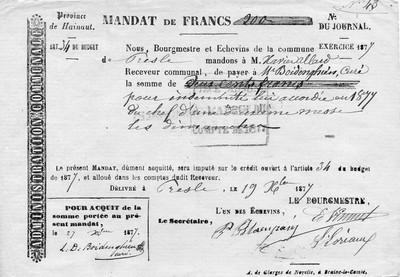 Province
de Hainaut.
MANDAT DE FRANCS 200
N:
DU JOURNAL.
ART. 34 DU BUDGET
EXERCICE 1877
Nous, Bourgmestre et Echevins de la commune
de Presle mandons à M. Xavier Allard
Receveur communal, de payer à Mr Boidenghien, Curé
la somme de Deux cents francs
pour indemnité lui accordée en 1877
du chef d'une messe
les dimanches
COMPTE DE 187
ADMINISTRATION COMMUNALE
Le présent MANDAT, dûment acquitté, sera imputé sur le crédit ouvert à l'article 34 du budget
de 1877, et alloué dans les comptes dudit Receveur.
DÉLIVRÉ À Presle, LE 19 Xbre 1877
POUR ACQUIT de la
somme portée au présent
mandat,
le 27 Xbre 1877.
L. D. Boidenghien
Curé.
Le Secrétaire,
L'UN DES ÉCHEVINS,
LE BOURGMESTRE,
A. de Clerges de Noyelle, à Braine-le-Comte.